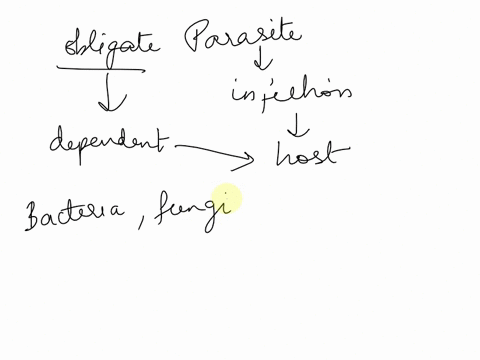 obligate Parasite
infection
dependent host
Bacteria, fungi